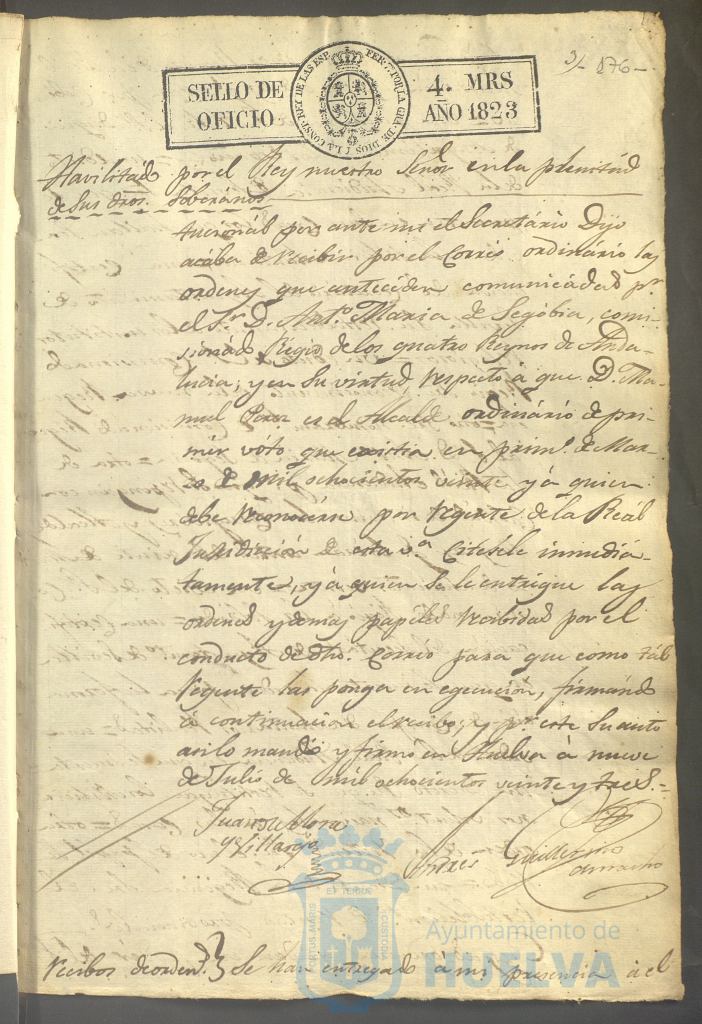 3/- 876-
SELLO DE OFICIO
FER. 7. POR LA GRA. DE DIOS Y LA CONST. REY DE LAS ESP.
4. MRS AÑO 1823
Havilitado por el Rey nuestro Señor en la plenitud
de sus dros. Soberanos
tucionál por ante mi el Secretário Dijo
acába de recibir por el Correo ordinário las
ordenes que antecéden comunicadas pr.
el Sr. D. Antº. Maria de Segóbia, comi-
sionádo Régio de los quatro Reynos de Anda-
lucia; y en su virtud respecto á que D. Ma-
nuel Perez es el Alcalde ordinário de pri-
mér vóto que existia en primº. de Mar-
zo de mil ochocientos veinte y á quien
debe reconocérse por regente de la Reál
Jurisdicion de esta vª. Citesele inmediá-
tamente, y á quien se le entrégue las
ordenes y demas papéles recibidos por el
conducto de dho. Corréo para que como tál
Regente las ponga en egecucion, firmándo
á continuacion el recibo; y pr. este su auto
asi lo mandó y firmó en Huelva á nueve
de Julio de mil ochocientos veinte y tres.-
Juan de Mora
y Villarejo
Andrés Guillermo
Camacho
Recibos de orden.} Se han entregado á mi presencia á el
VIRTUS MARIS ET TERRE CUSTODIA
Ayuntamiento de
HUELVA